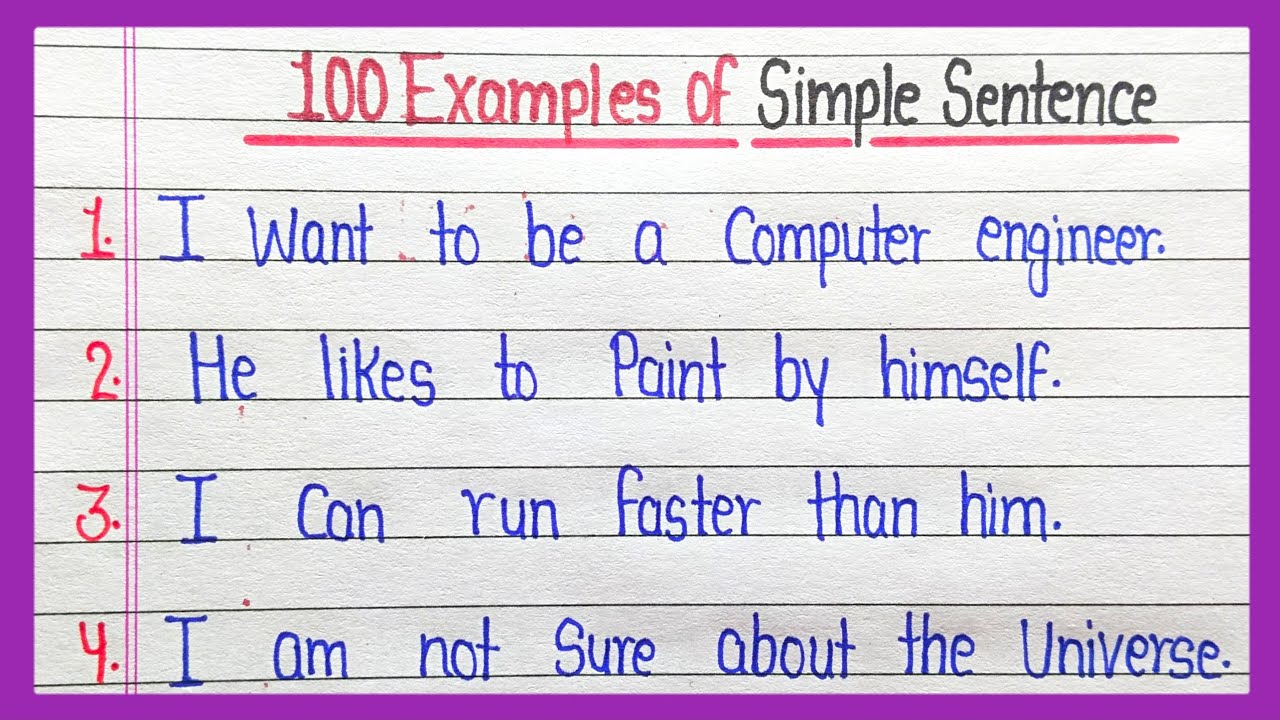 100 Examples of Simple Sentence
1. I Want to be a Computer engineer.
2. He likes to Paint by himself.
3. I Can run faster than him.
4. I am not Sure about the Universe.